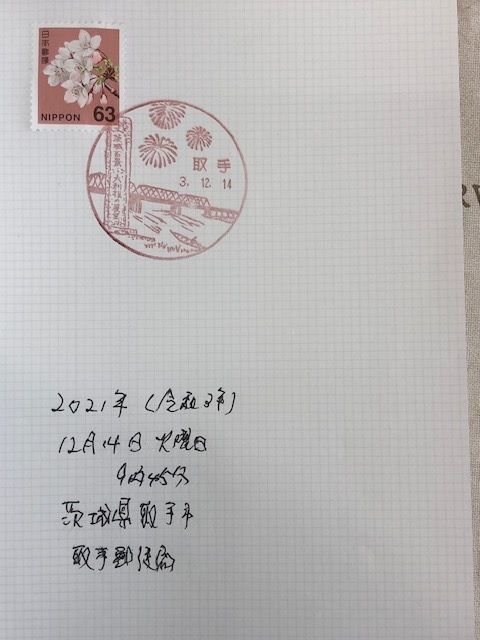 日本郵便
NIPPON 63
取手
3.12.14
2021年(令和3年)
12月14日 火曜日
9時45分
茨城県取手市
取手郵便局